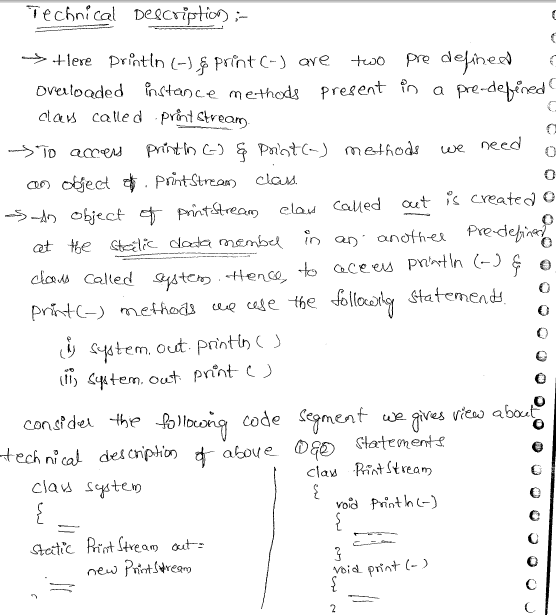 Technical Description :-
→ Here println(-) & print(-) are two pre defined
overloaded instance methods present in a pre-defined
class called printstream.
→ To access println(-) & print(-) methods we need
an object of. printstream class.
→ An object of printstream class called out is created
at the static data member in an another Pre-defined
class called system. Hence, to access println (-) &
print(-) methods we use the following statements.
(i) system. out. println( )
(ii) system. out. print ( )
consider the following code segment we gives view about
technical description of above ①&② statements
class system
{
static PrintStream out=
new PrintStream
class PrintStream
{
void println(-)
{
}
void print (-)
{
}